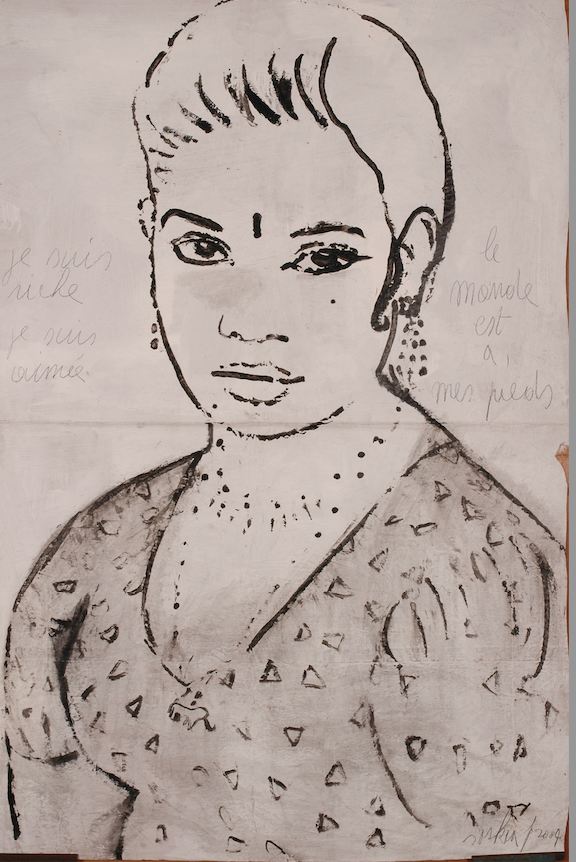 je suis
riche
je suis
aimée
le
monde
est
à
mes pieds
/2004